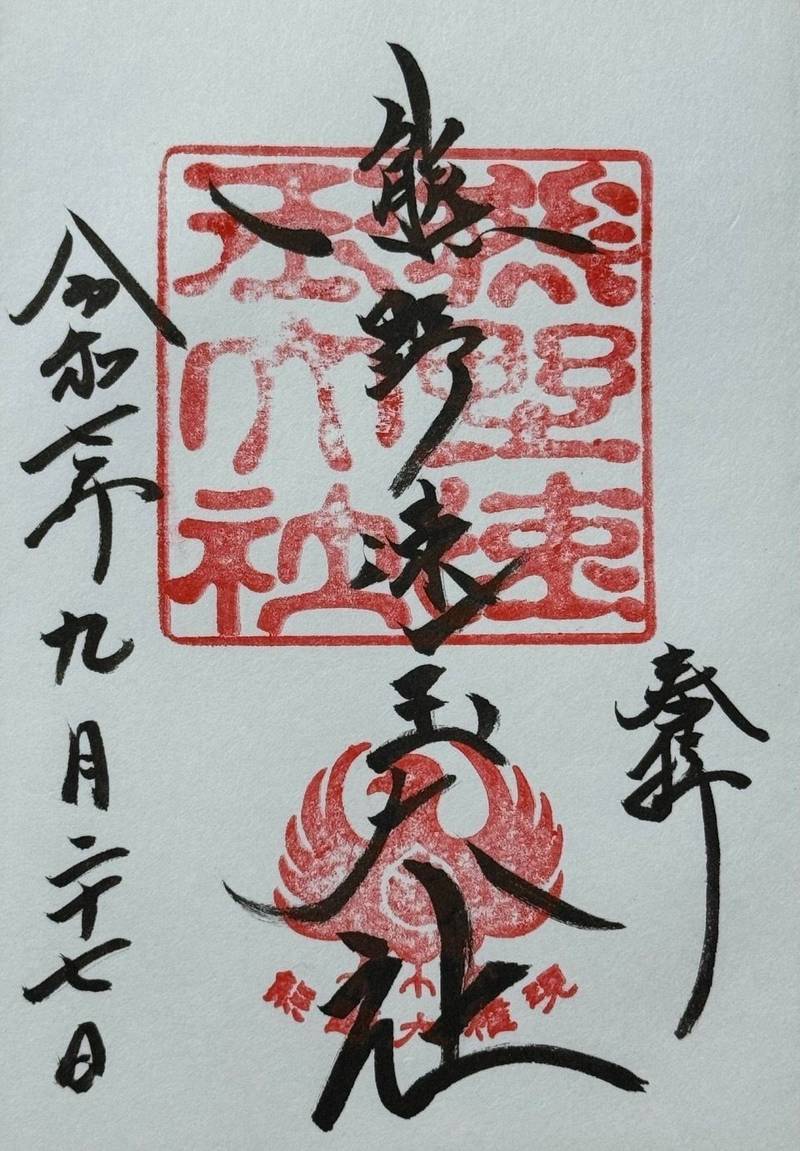 奉拝
熊野速玉大社
令和七年九月二十七日
熊野速
玉大社
熊野大權現